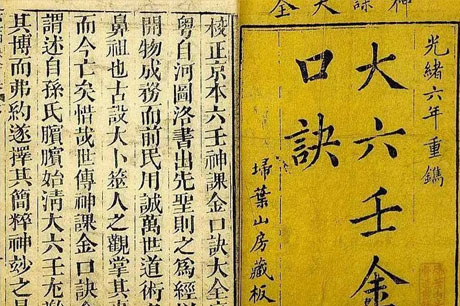 神課大全
光緒六年重鐫
大六壬金
口訣
埽葉山房藏板
校正京本六壬神課金口訣大全
粵自河圖洛書出先聖則之為經
開物成務而前民用誠萬世道術
鼻祖也古設大卜筮人之觀掌其
而今亡矣惜哉世傳神課金口訣
謂述自孫氏臏臏始清大六壬尤
其博而弗約遂擇其簡粹神妙之